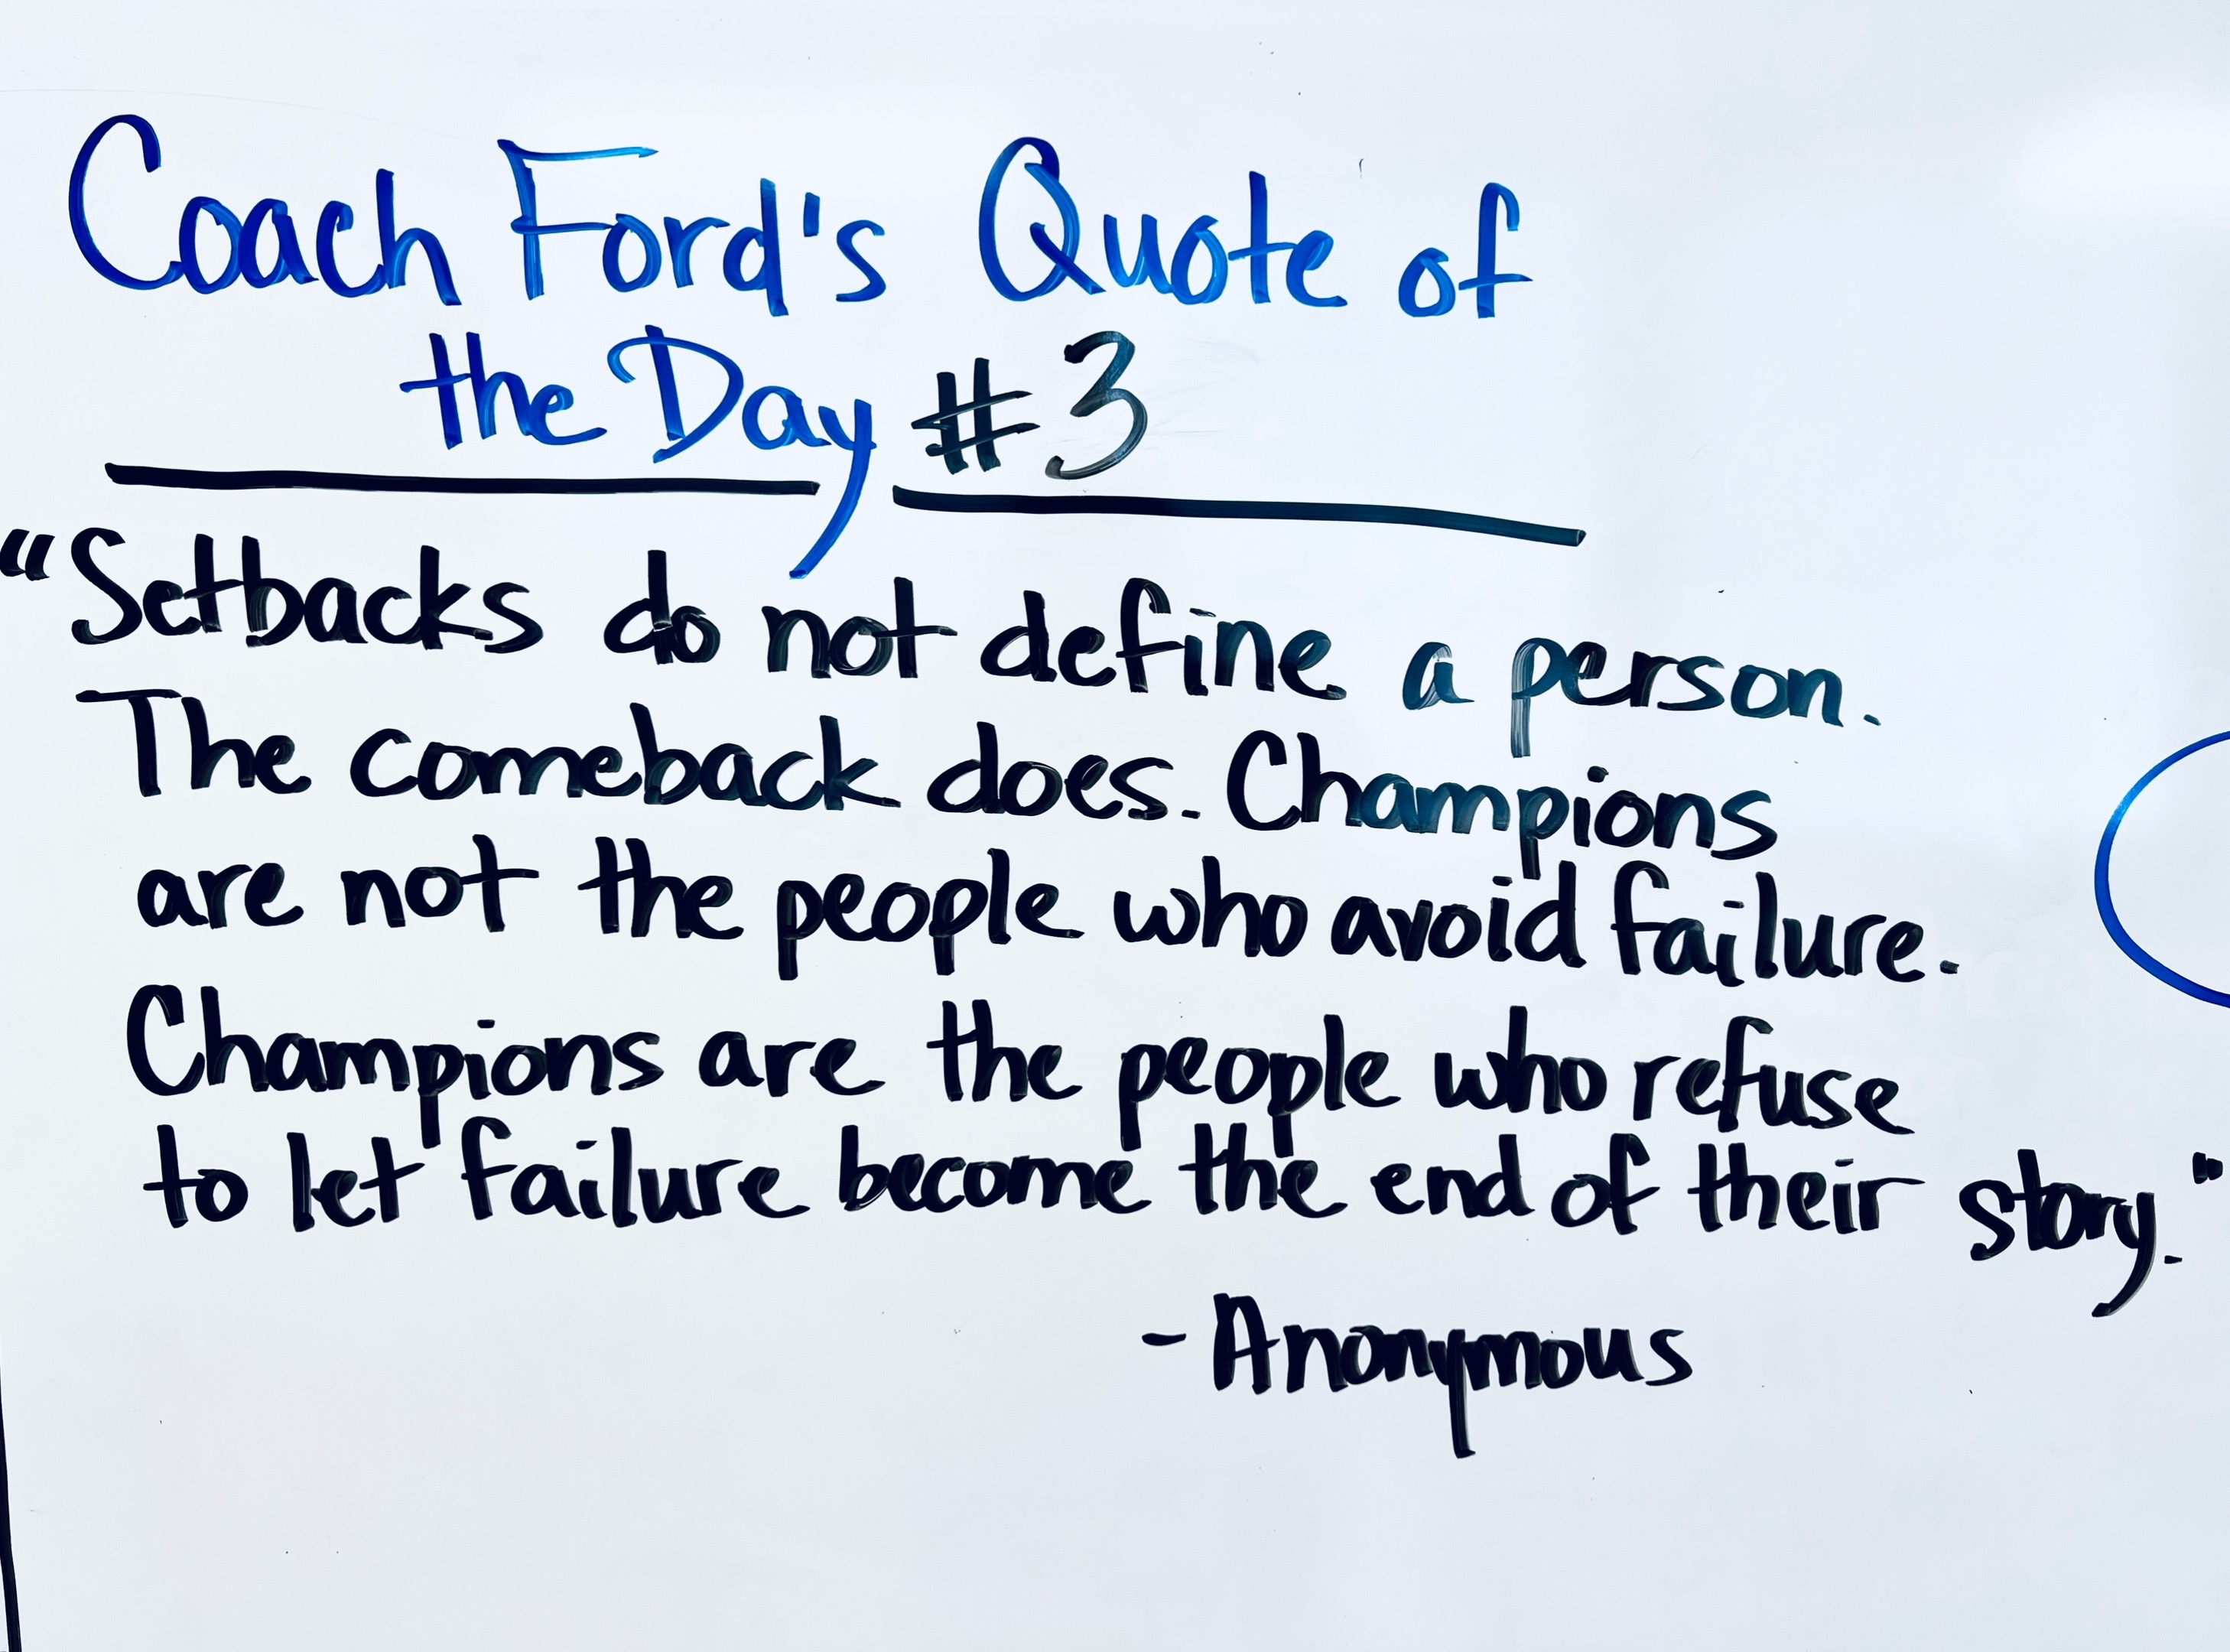 Coach Ford's Quote of
the Day #3
"Setbacks do not define a person.
The comeback does. Champions
are not the people who avoid failure.
Champions are the people who refuse
to let failure become the end of their story."
- Anonymous